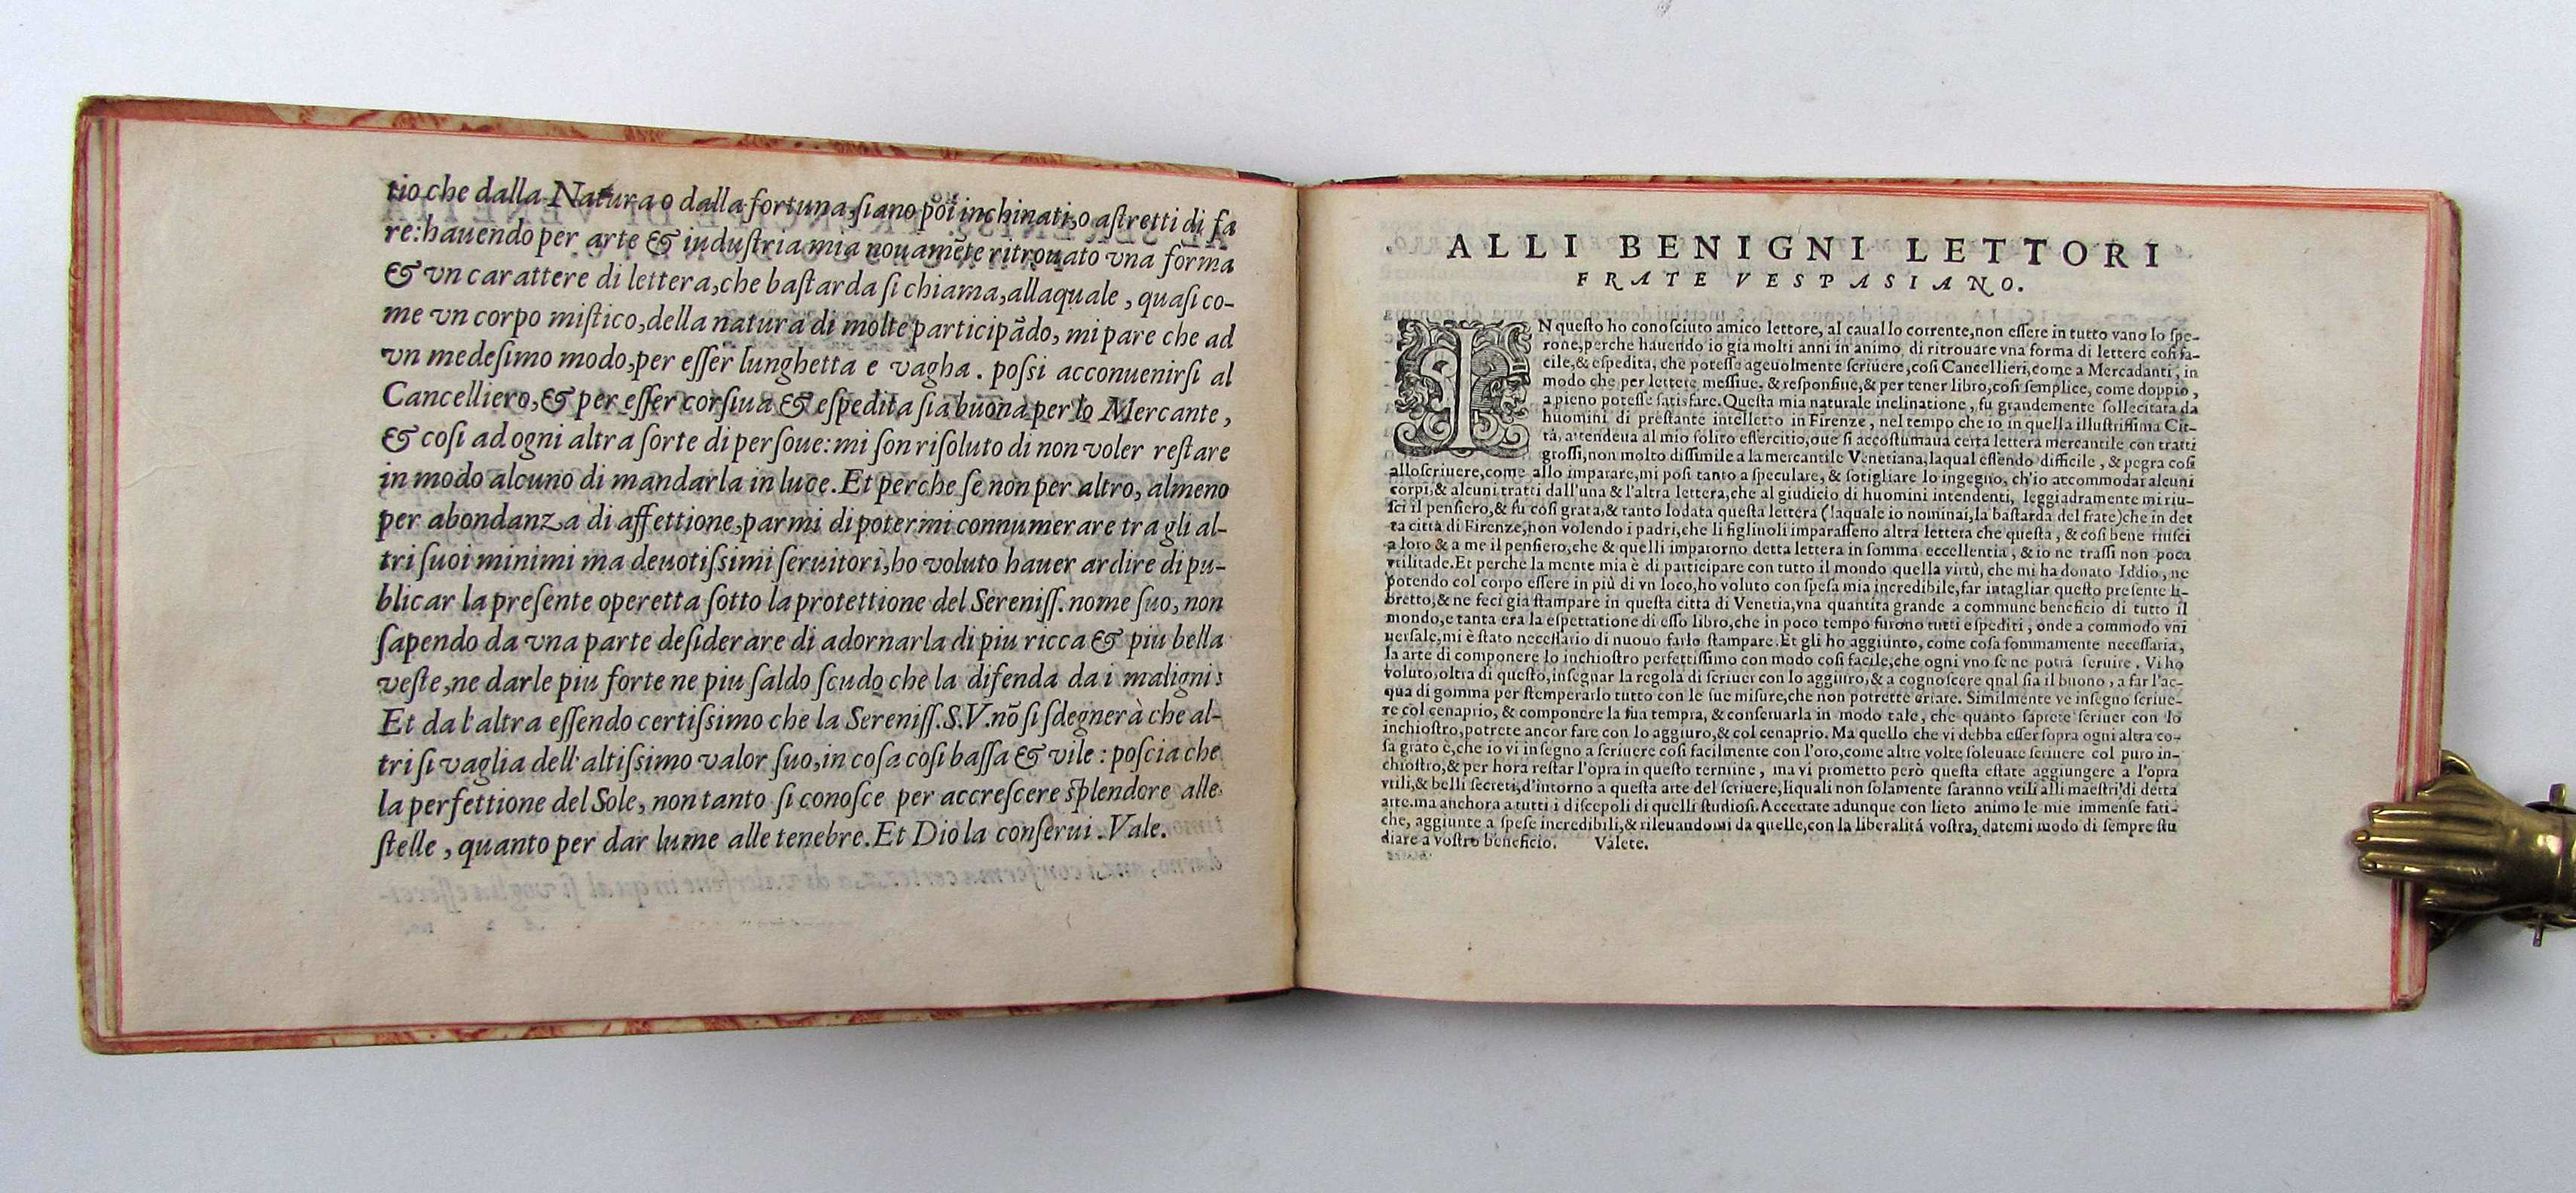 tio che dalla Natura o dalla fortuna, ſiano poi inchinati, o aſtretti di fa
re: hauendo per arte & induſtria mia nouamẽte ritrouato vna forma
& vn carattere di lettera, che baſtarda ſi chiama, allaquale, quaſi co-
me vn corpo miſtico, della natura di molte participãdo, mi pare che ad
vn medeſimo modo, per eſſer lunghetta e vagha. poſsi acconuenirſi al
Cancelliero, & per eſſer corſiua & eſpedita ſia buona per lo Mercante,
& coſi ad ogni altra ſorte di perſoue: mi ſon riſoluto di non voler reſtare
in modo alcuno di mandarla in luce. Et perche ſe non per altro, almeno
per abondanza di affettione, parmi di potermi connumerare tra gli al-
tri ſuoi minimi ma deuotiſsimi ſeruitori, ho voluto hauer ardire di pu-
blicar la preſente operetta ſotto la protettione del Sereniſſ. nome ſuo, non
ſapendo da vna parte deſiderare di adornarla di piu ricca & piu bella
veſte, ne darle piu forte ne piu ſaldo ſcudo che la difenda da i maligni:
Et da l'altra eſſendo certiſsimo che la Sereniſſ. S. V. nõ ſi ſdegnerà che al-
tri ſi vaglia dell'altiſsimo valor ſuo, in coſa coſi baſſa & vile: poſcia che
la perfettione del Sole, non tanto ſi conoſce per accreſcere ſplendore alle
ſtelle, quanto per dar lume alle tenebre. Et Dio la conſerui. Vale.
ALLI BENIGNI LETTORI
FRATE VESPASIANO.
IN queſto ho conoſciuto amico lettore, al cauallo corrente, non eſſere in tutto vano lo ſpe-
rone, perche hauendo io gia molti anni in animo di ritrouare vna forma di lettere coſi fa-
cile, & eſpedita, che poteſſe ageuolmente ſcriuere, coſi Cancellieri, come a Mercadanti, in
modo che per lettere meſſiue, & reſponſiue, & per tener libro, coſi ſemplice, come doppio,
a pieno poteſſe ſatisfare. Queſta mia naturale inclinatione, fu grandemente ſollecitata da
huomini di preſtante intelletto in Firenze, nel tempo che io in quella illuſtriſſima Cit-
tà, attendeua al mio ſolito eſſercitio, oue ſi accoſtumaua certa lettera mercantile con tratti
groſſi, non molto diſſimile a la mercantile Venetiana, laqual eſſendo difficile, & pegra coſi
alloſcriuere, come allo imparare, mi poſi tanto a ſpeculare, & ſotigliare lo ingegno, ch'io accommodai alcuni
corpi, & alcuni tratti dall'una & l'altra lettera, che al giudicio di huomini intendenti, leggiadramente mi riu-
ſci il penſiero, & fu coſi grata, & tanto lodata queſta lettera (laquale io nominai, la baſtarda del frate) che in det
ta città di Firenze, non volendo i padri, che li figlinoli imparaſſeno altra lettera che queſta, & coſi bene riuſci
a loro & a me il penſiero, che & quelli imparorno detta lettera in ſomma eccellentia, & io ne traſſi non poca
vtilitade. Et perche la mente mia è di participare con tutto il mondo quella virtù, che mi ha donato Iddio, ne
potendo col corpo eſſere in più di vn loco, ho voluto con ſpeſa mia incredibile, far intagliar queſto preſente li-
bretto, & ne feci già ſtampare in queſta città di Venetia, vna quantità grande a commune beneficio di tutto il
mondo, e tanta era la eſpettatione di eſſo libro, che in poco tempo furono tutti eſpediti, onde a commodo vni
uerſale, mi è ſtato neceſſario di nuouo farlo ſtampare. Et gli ho aggiunto, come coſa ſommamente neceſſaria,
la arte di componere lo inchioſtro perfettiſſimo con modo coſi facile, che ogni vno ſe ne potrà ſeruire. Vi ho
voluto, oltra di queſto, inſegnar la regola di ſcriuer con lo aggiuro, & a cognoſcere qnal ſia il buono, a far l'ac-
qua di gomma per ſtemperarlo tutto con le ſue miſure, che non potrette errare. Similmente ve inſegno ſcriue-
re col cenaprio, & componere la ſua tempra, & conſeruarla in modo tale, che quanto ſaprete ſcriuer con lo
inchioſtro, potrete ancor fare con lo aggiuro, & col cenaprio. Ma quello che vi debba eſſer ſopra ogni altra co-
ſa grato è, che io vi inſegno a ſcriuere coſi facilmente con l'oro, come altre volte ſoleuate ſcriuere col puro in-
chioſtro, & per hora reſtar l'opra in queſto termine, ma vi prometto però queſta eſtate aggiungere a l'opra
vtili, & belli ſecreti, d'intorno a queſta arte del ſcriuere, liquali non ſolamente ſaranno vtili alli maeſtri di detta
arte. ma anchora a tutti i diſcepoli di quelli ſtudioſi. Accettate adunque con lieto animo le mie immenſe fati-
che, aggiunte a ſpeſe incredibili, & rileuandomi da quelle, con la liberalità voſtra, datemi modo di ſempre ſtu
diare a voſtro beneficio. Valete.